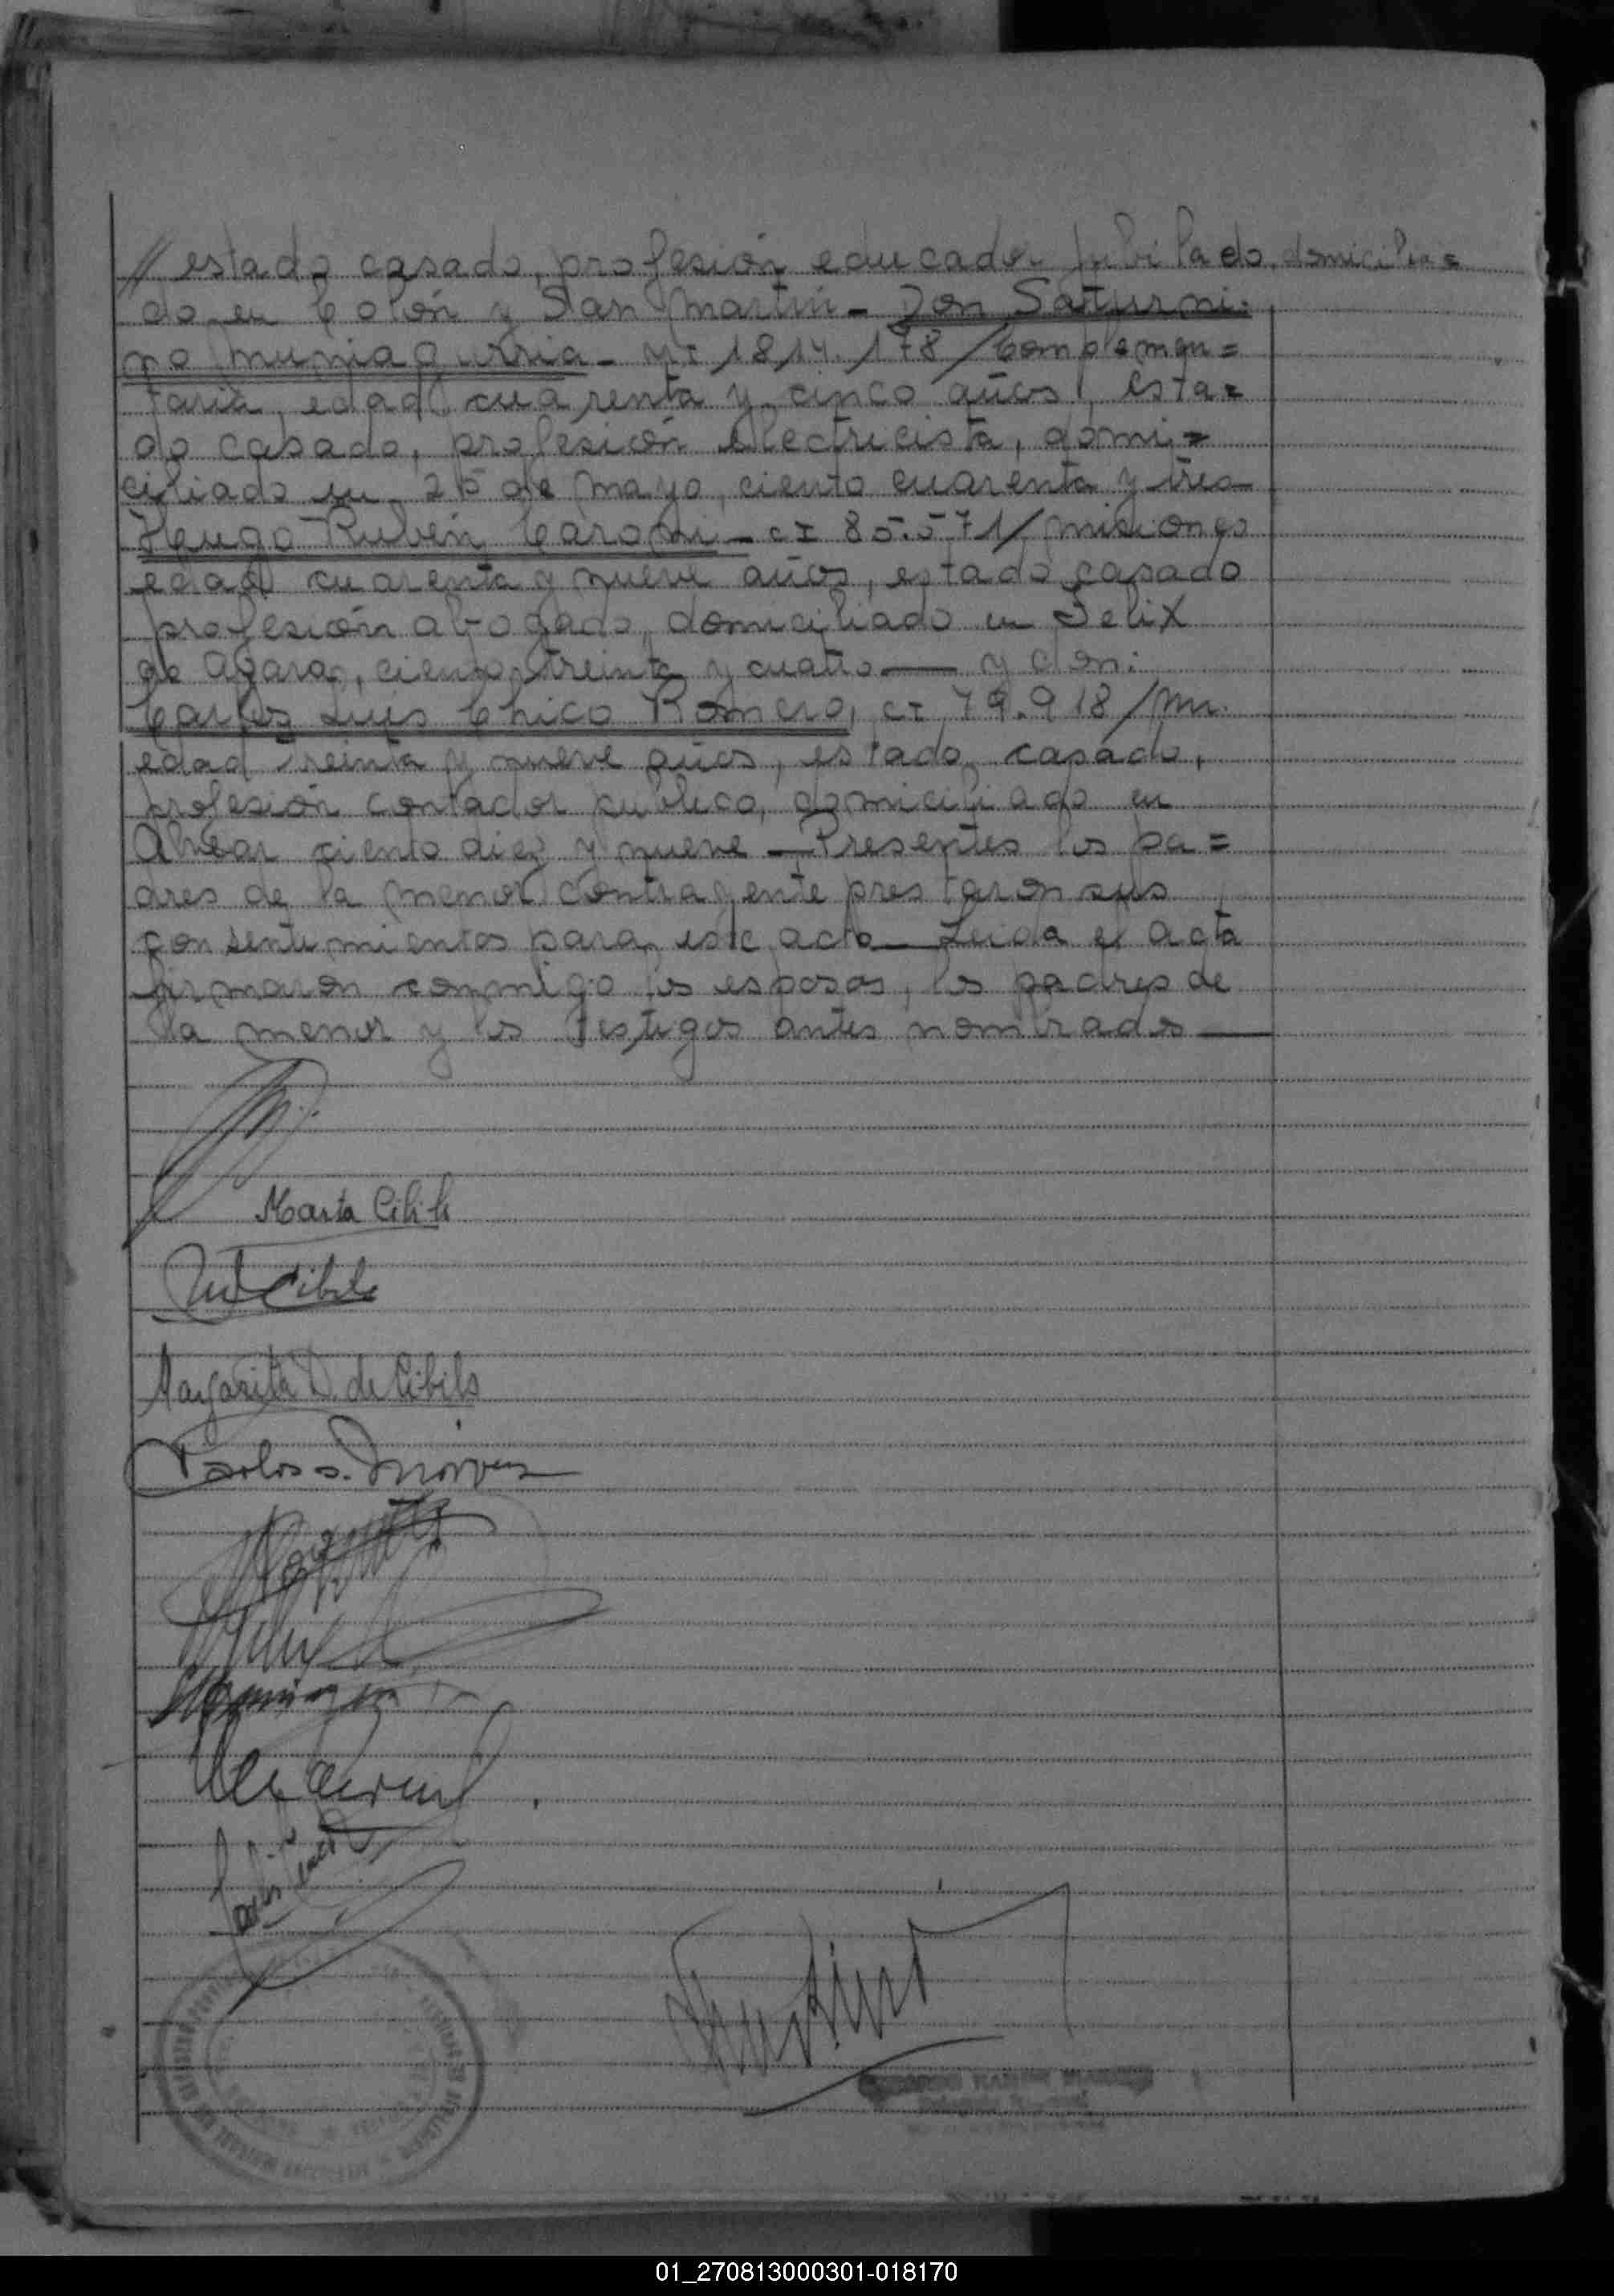 // estado casado, profesión educador jubilado, domicilia=
do en Colón y San Martín - Don Saturni-
no Muniagurria - MI 1.814.178/Complemen=
taria, edad cuarenta y cinco años, esta=
do casado, profesión electricista, domi=
ciliado en 25 de Mayo, ciento cuarenta y tres
Hugo Rubén Caromi - CI 85.571/Misiones
edad cuarenta y nueve años, estado casado
profesión abogado, domiciliado en Felix
de Azara, ciento treinta y cuatro — y don:
Carlos Luis Chico Romero, CI 79.918/Mn.
edad treinta y nueve años, estado casado,
profesión contador público, domiciliado en
Alvear ciento diez y nueve — Presentes los pa=
dres de la menor contrayente prestaron sus
consentimientos para este acto — Leida el acta
firmaron conmigo los esposos, los padres de
la menor y los testigos antes nombrados —
Marta Cibils
Cibils
Margarita D. de Cibils
Carlos S.
01_270813000301-018170